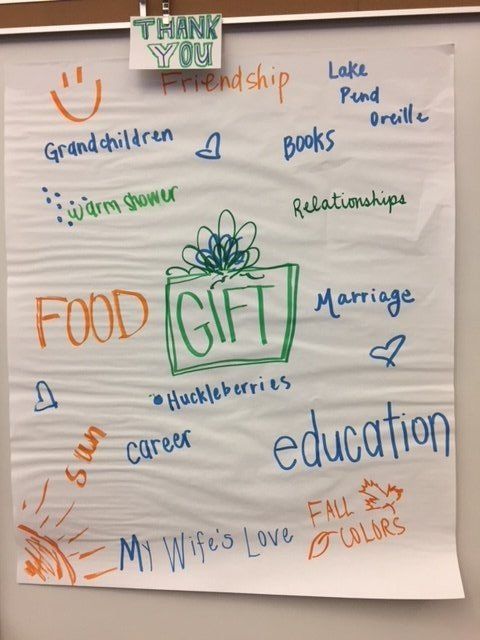 THANK
YOU
Friendship
Lake
Pend
Oreille
Grandchildren
BOOKS
warm shower
Relationships
FOOD
GIFT
Marriage
Huckleberries
sun
career
education
FALL
COLORS
My Wife's Love